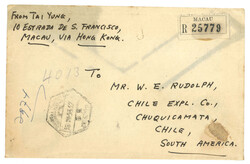 FROM TAI YUNG,
10 ESTRADA DE S. FRANCISCO,
MACAU, VIA HONG KONG.
MACAU
R 25779
4073
TO
MR. W. E. RUDOLPH,
CHILE EXPL. CO.,
CHUQUICAMATA,
CHILE,
SOUTH AMERICA.